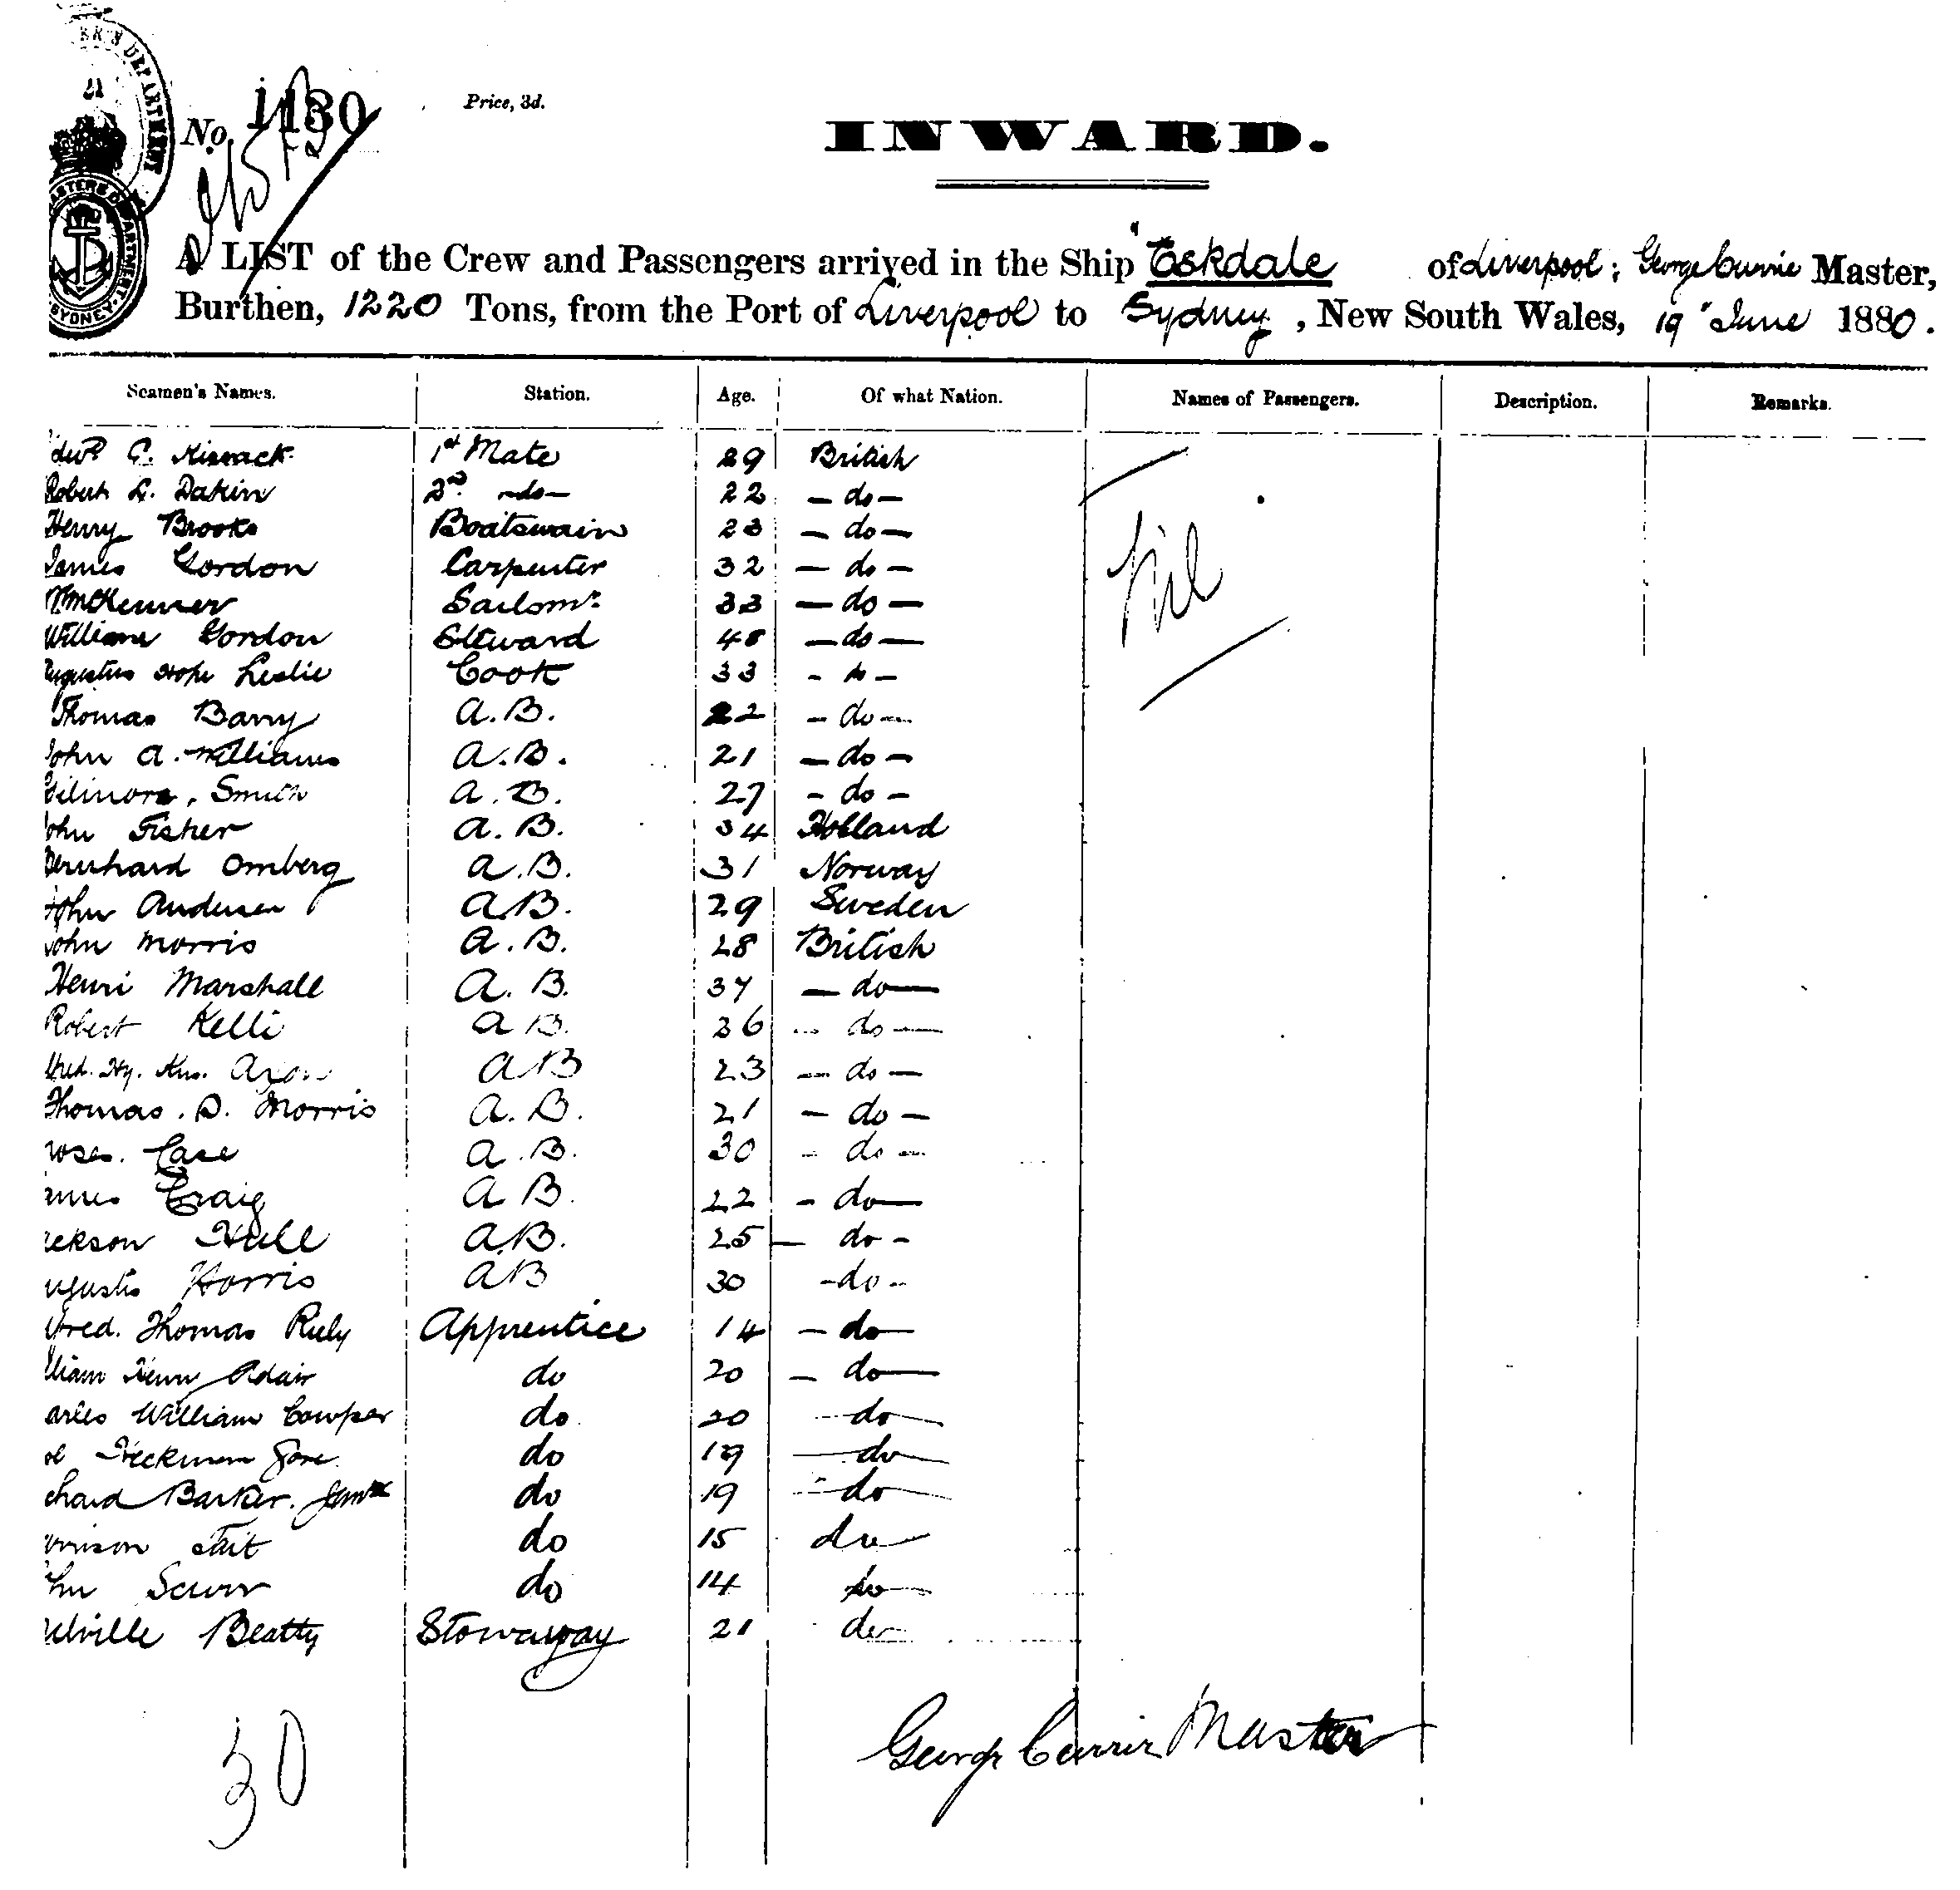 No. 1130
Price, 3d.
INWARD.
A LIST of the Crew and Passengers arrived in the Ship "Eskdale of Liverpool; George Currie Master,
Burthen, 1220 Tons, from the Port of Liverpool to Sydney, New South Wales, 19" June 1880.
Seamen's Names. Station. Age. Of what Nation. Names of Passengers. Description. Remarks.
C. Kissack 1st Mate 29 British
Robert L. Dakin 2nd -do- 22 - do - Nil
Henry Brooks Boatswain 23 - do -
James Gordon Carpenter 32 - do -
Sailsmr 33 - do -
William Gordon Steward 48 - do -
Augustus Hope Leslie Cook 33 - do -
Thomas Barry A.B. 22 - do -
John A. Williams A.B. 21 - do -
Smith A.B. 27 - do -
John Fisher A.B. 34 Holland
Bernhard Omberg A.B. 31 Norway
John Andersen A.B. 29 Sweden
John Morris A.B. 28 British
Henri Marshall A.B. 37 - do -
Robert Kelli A B. 26 - do -
A B 23 - do -
Thomas. D. Morris A.B. 21 - do -
oses. Case A.B. 30 - do -
ames Craig A B. 22 - do -
ackson Hull A.B. 25 - do -
ugustus Horris A B 30 - do -
lfred. Thomas Riely Apprentice 14 - do -
lliam Henry Adair do 20 - do -
arles William Cowper do 20 - do -
Heckman Gore do 19 - do
chard Barker. do 19 - do
orrison Tait do 15 do
hn Scurr do 14 do
elville Beatty Stowaway 21 do
30
George Currie Master